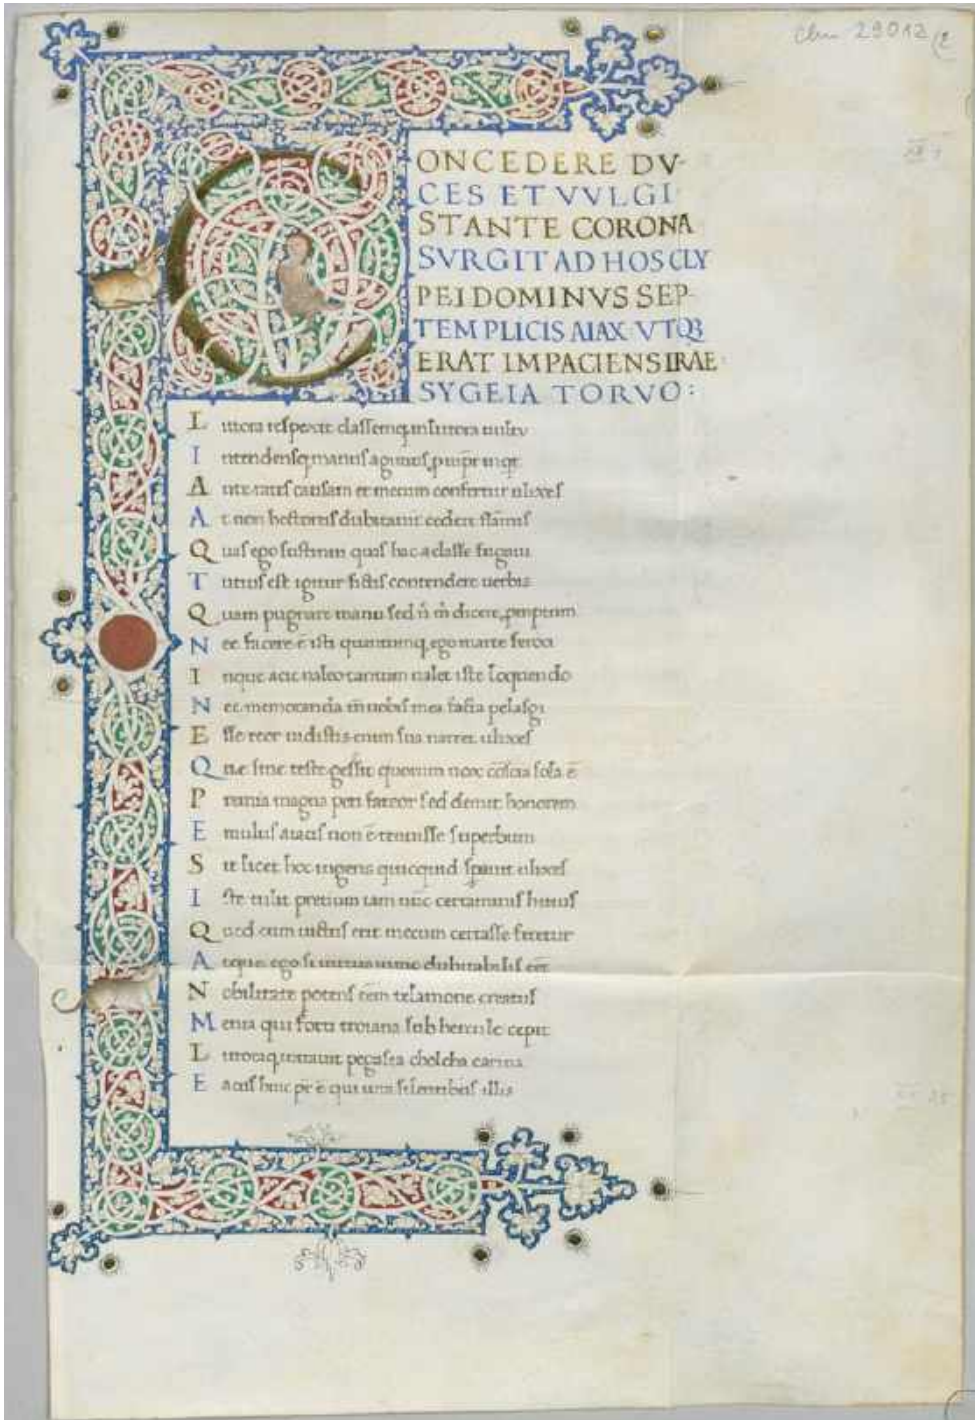 clm 29012(2
CONCEDERE DV-
CES ET VVLGI
STANTE CORONA
SVRGIT AD HOS CLY
PEI DOMINVS SEP-
TEMPLICIS AIAX VTQ3
ERAT IMPACIENS IRAE
SYGEIA TORVO:
Littora respexit classemq; in littora uultu
Intendensq; manus agimus, p iupr inqt
Ante rates causam et mecum confertur ulixes
At non hectoreis dubitauit cedere flamis
Quas ego sustinui quas hac a classe fugaui
Tutius est igitur fictis contendere uerbis
Quam pugnare manu sed n m dicere, promptum
Nec facere ē isti quantumq, ego marte feroci
Inque acie ualeo tantum ualet iste loquendo
Nec memoranda m̄ uobis mea facta pelasgi
Esse reor uidistis enim sua narret ulixes
Que sine teste gessit quorum nox cōscia sola ē
Premia magna peti fateor sed demit honorem
Emulus aiacis non ē tenuisse superbum
Sit licet hoc ingens quicquid sperauit ulixes
Iste tulit pretium iam nūc certaminis huius
Quod cum uictus erit mecum certasse feretur
Atque ego si uirtus in me dubitabilis eēt
Nobilitate potens eēm telamone creatus
Menia qui forti troiana sub hercule cepit
Littoraq; intrauit pegasea cholcha carina
Eacus huic pr ē qui iura silentibus illis